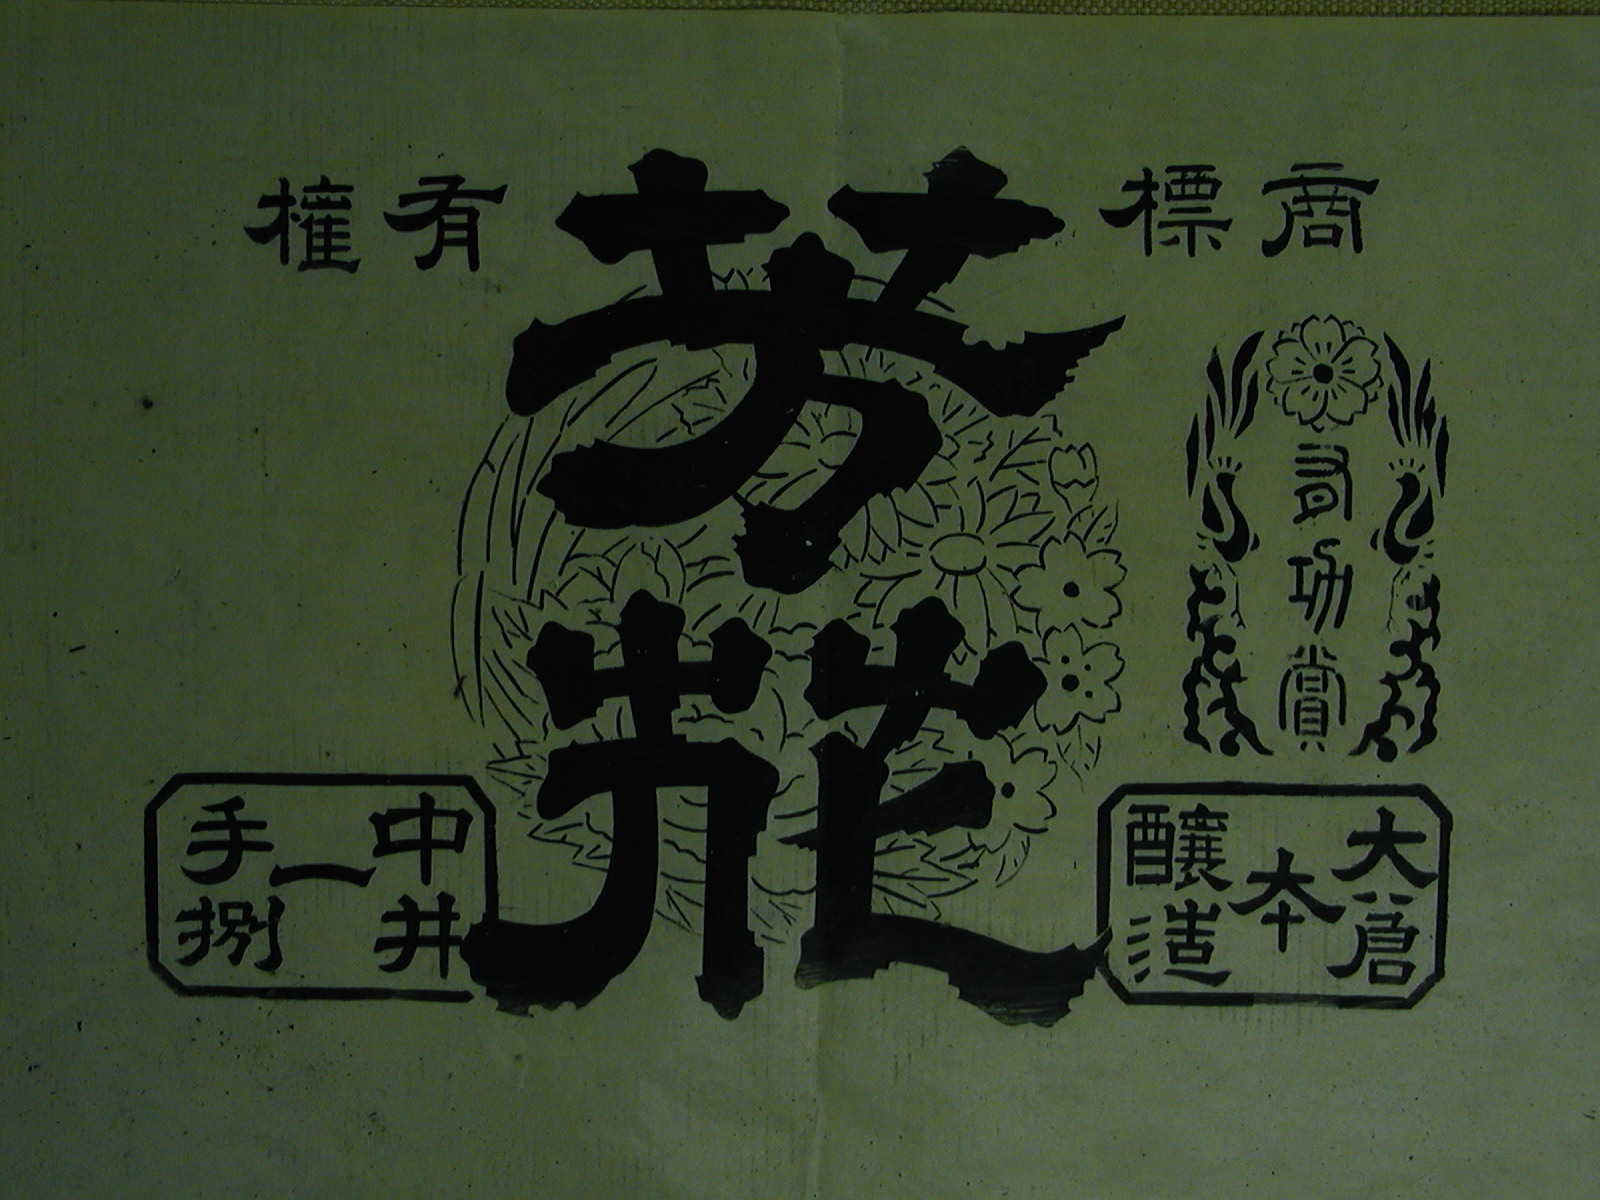 商標
有權
芳花
有功賞
大倉
本
釀造
中井
一
手捌